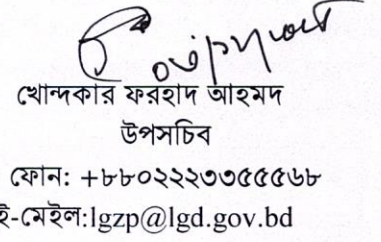 খোন্দকার ফরহাদ আহমদ
উপসচিব
ফোন: +৮৮০২২২৩৩৫৫৫৬৮
ই-মেইল:lgzp@lgd.gov.bd